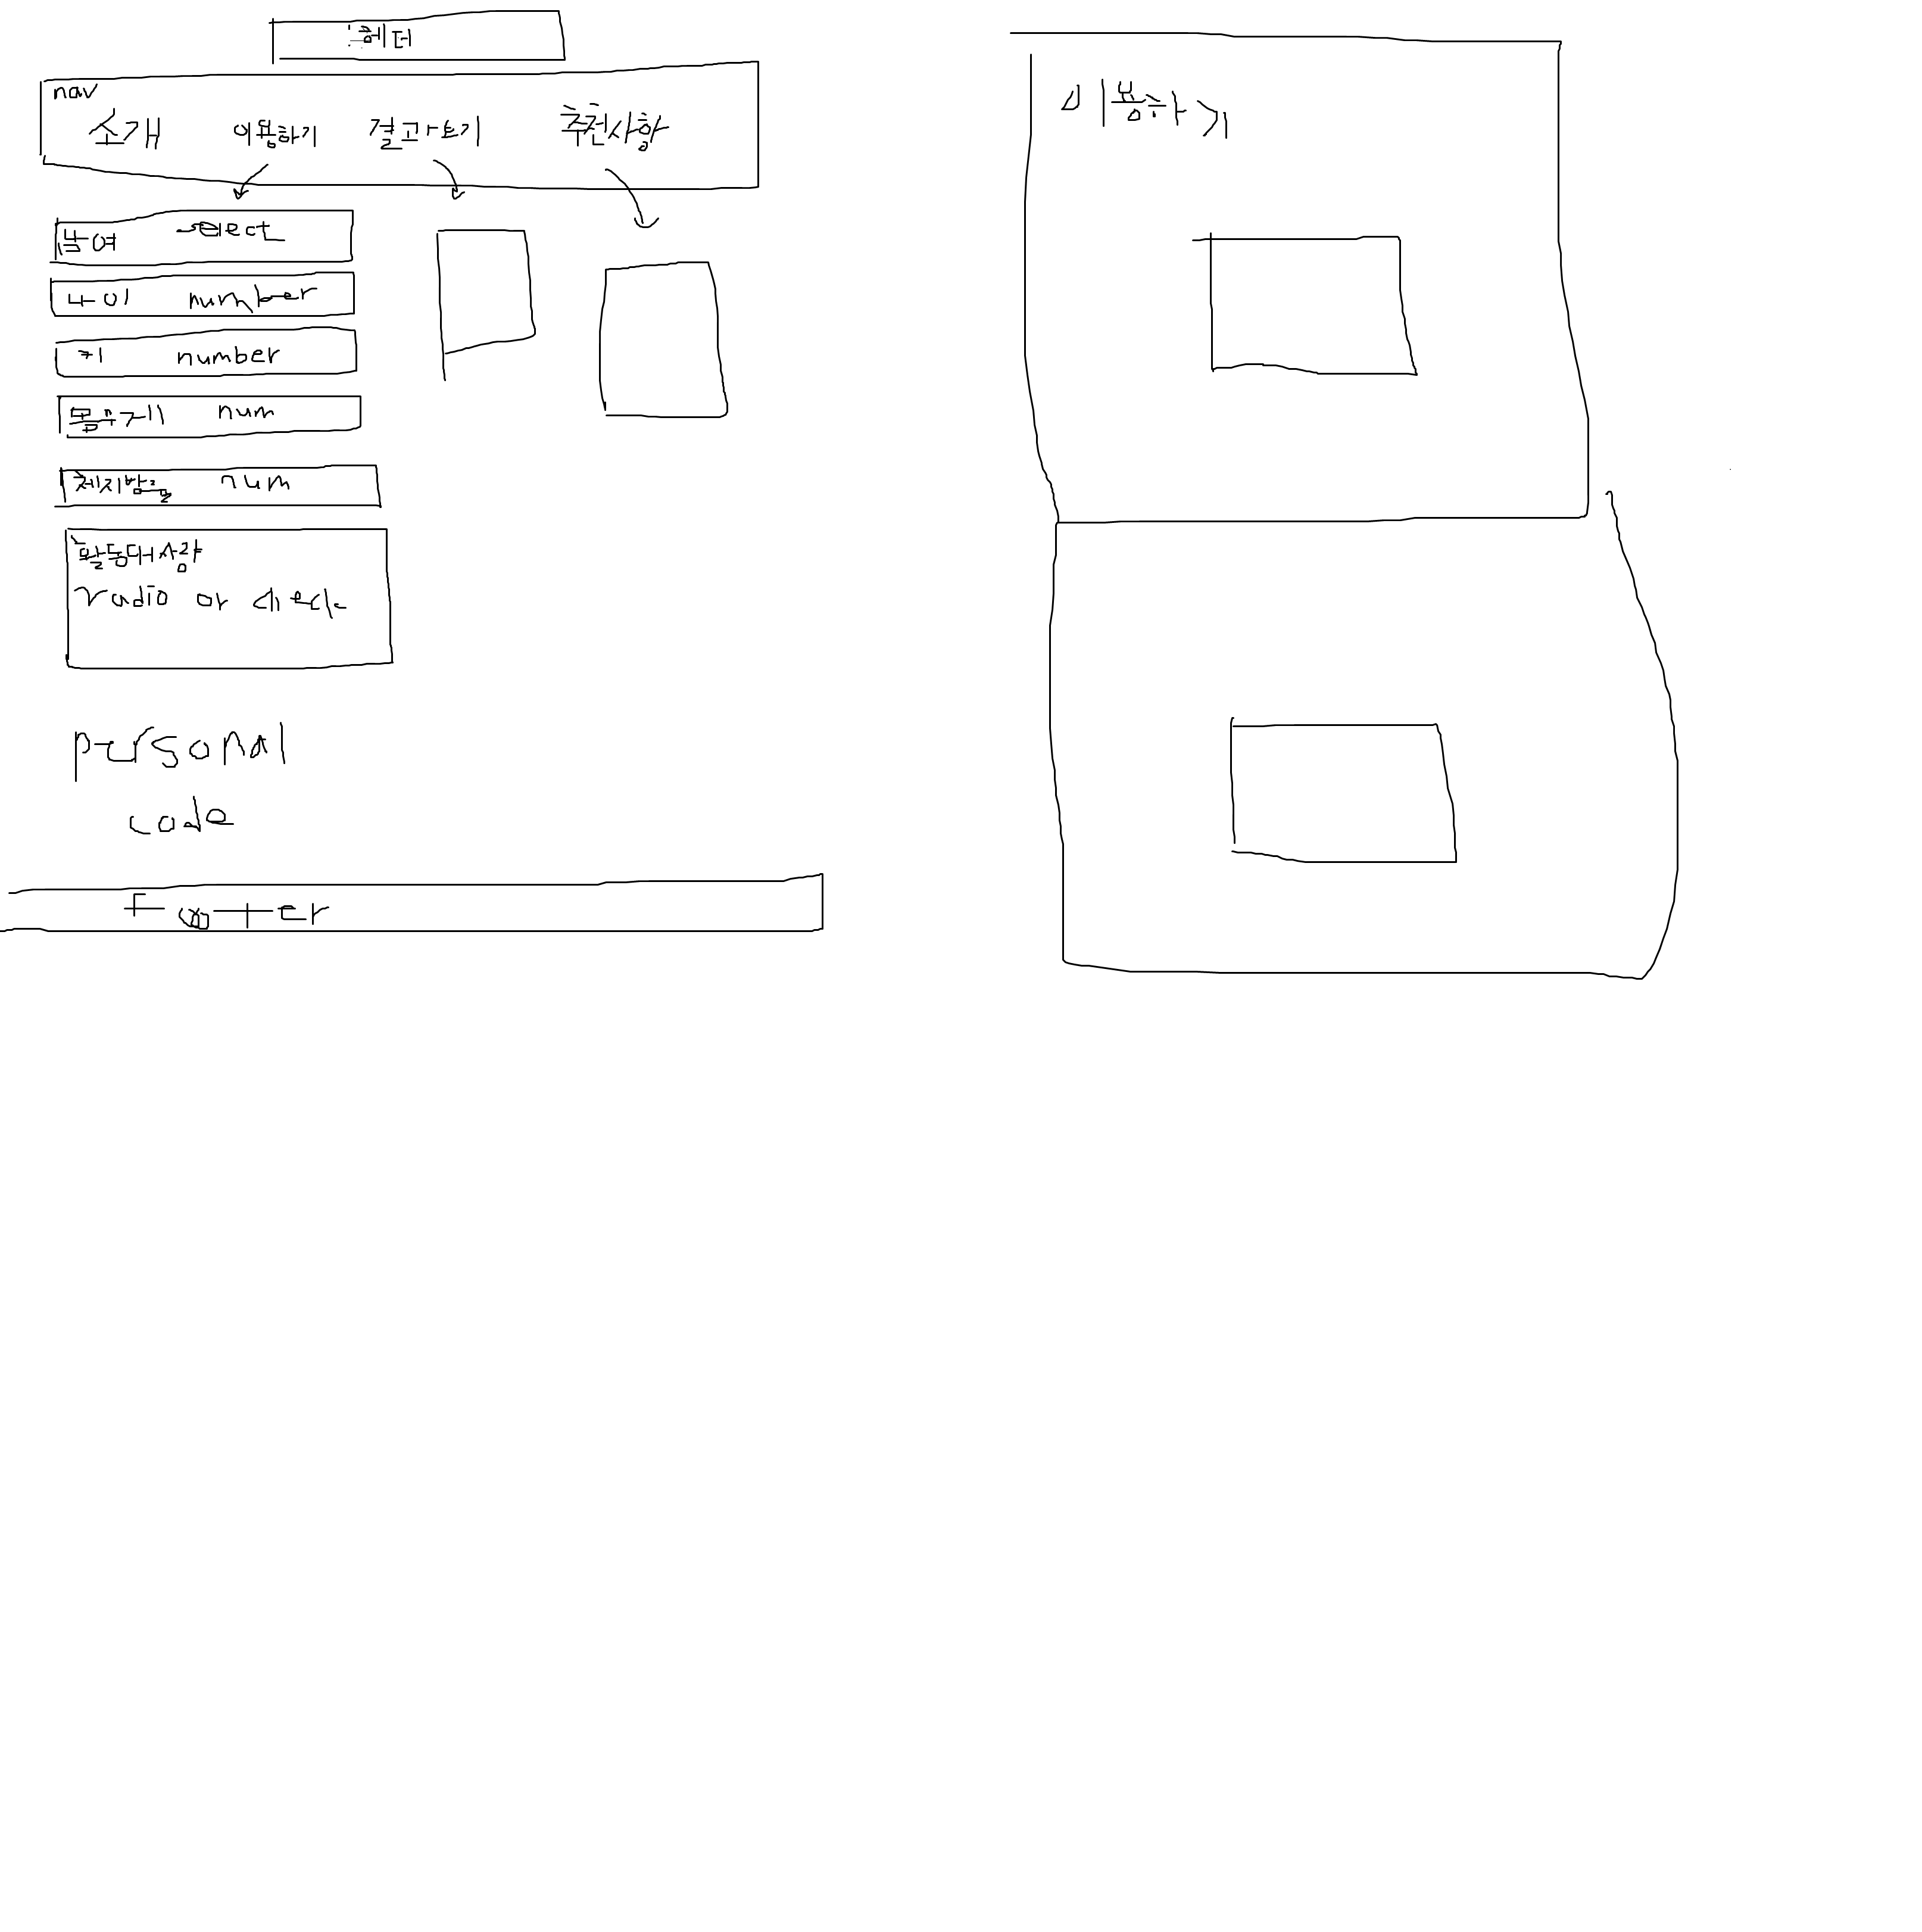 헤더
nav
소개 이용하기 결과보기 추천사항
남여 select
나이 number
키 number
몸무게 num
체지방률 num
활동대사량
radio or check
personal
code
Footer
이용하기